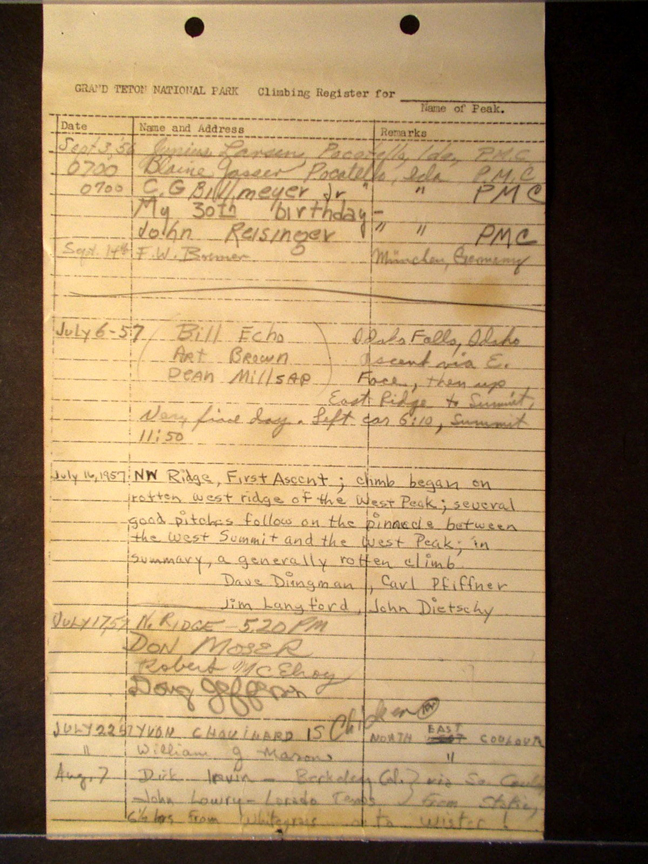 GRAND TETON NATIONAL PARK Climbing Register for
Name of Peak.
Date Name and Address Remarks
Sept 3, '56 Junius Larsen, Pocatello, Ida, P.M.C.
0700 Blaine Gasser Pocatello, Ida P.M.C
0700 C.G Billmeyer Jr " " PMC
My 30th birthday-
John Reisinger " " PMC
Sept. 14th F.W. München, Germany
July 6-57 Bill Echo Idaho Falls, Idaho
Art Brown Ascent via E.
Dean Millsap Face, then up
East Ridge to Summit,
Very fine day. Left car 5:10, Summit
11:50
July 16, 1957 NW Ridge, First Ascent; climb began on
rotten west ridge of the West Peak; several
good pitches follow on the pinnacle between
the West Summit and the West Peak; in
summary, a generally rotten climb
Dave Dingman, Carl Pfiffner
Jim Langford, John Dietschy
JULY 17, 57 N. RIDGE - 5:20 PM
DON MOSER
Robert McElroy
Doug
JULY 22 57 YVON CHOUINARD IS Chicken NORTH EAST COULOUR
" William J Mason "
Aug. 7 Dick Irvin - Berkeley Cal. via So.
John Lowry - Texas from
6½ hrs from Whitegrass